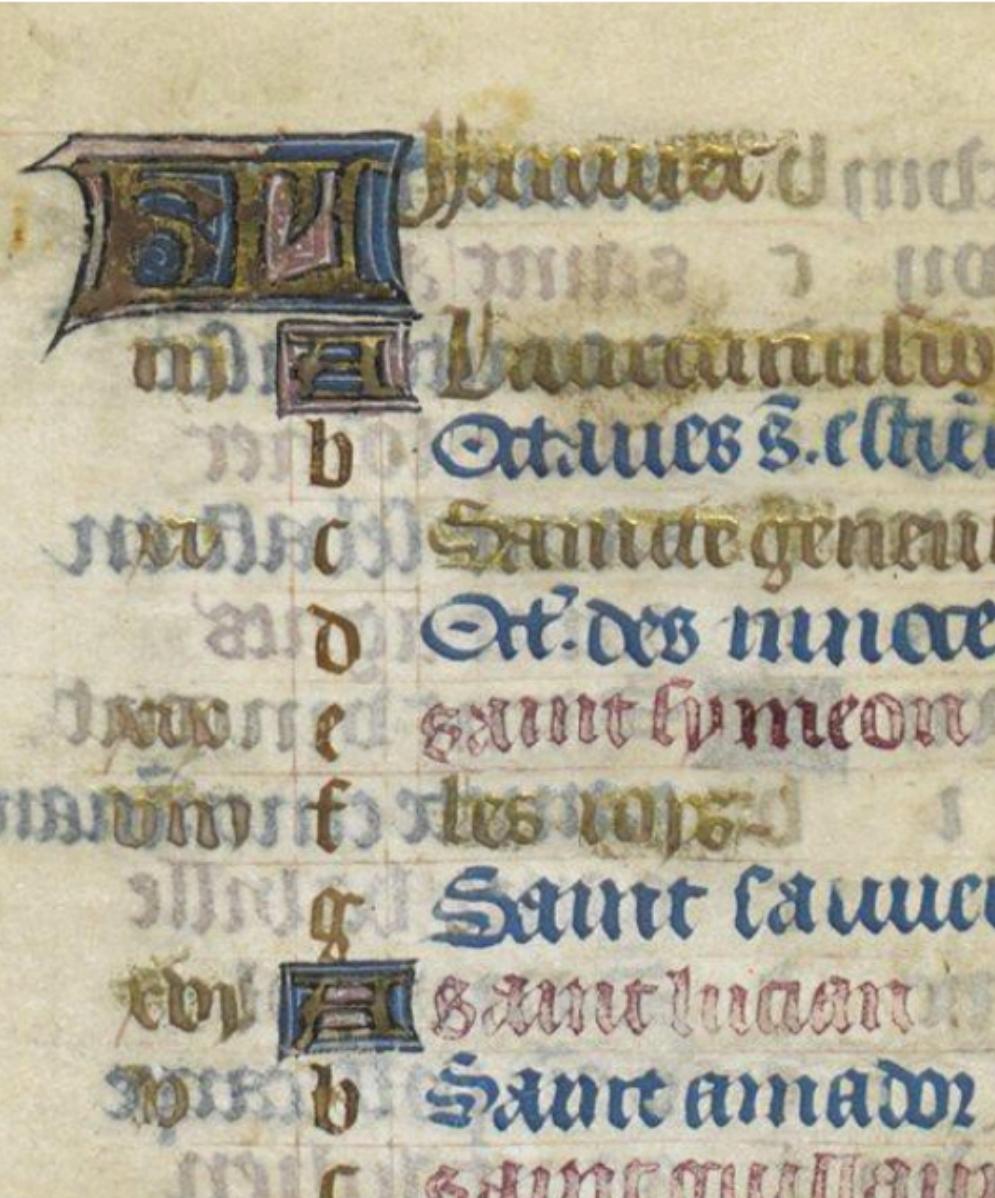 KL Januier
iii A La circunsision
b Octaues s. estie
c Sainte geneu
d Oct. des innoce
e saint symeon
f les roys
g Saint sauueu
xvi A saint lucian
v b Saint amador
c saint guillau